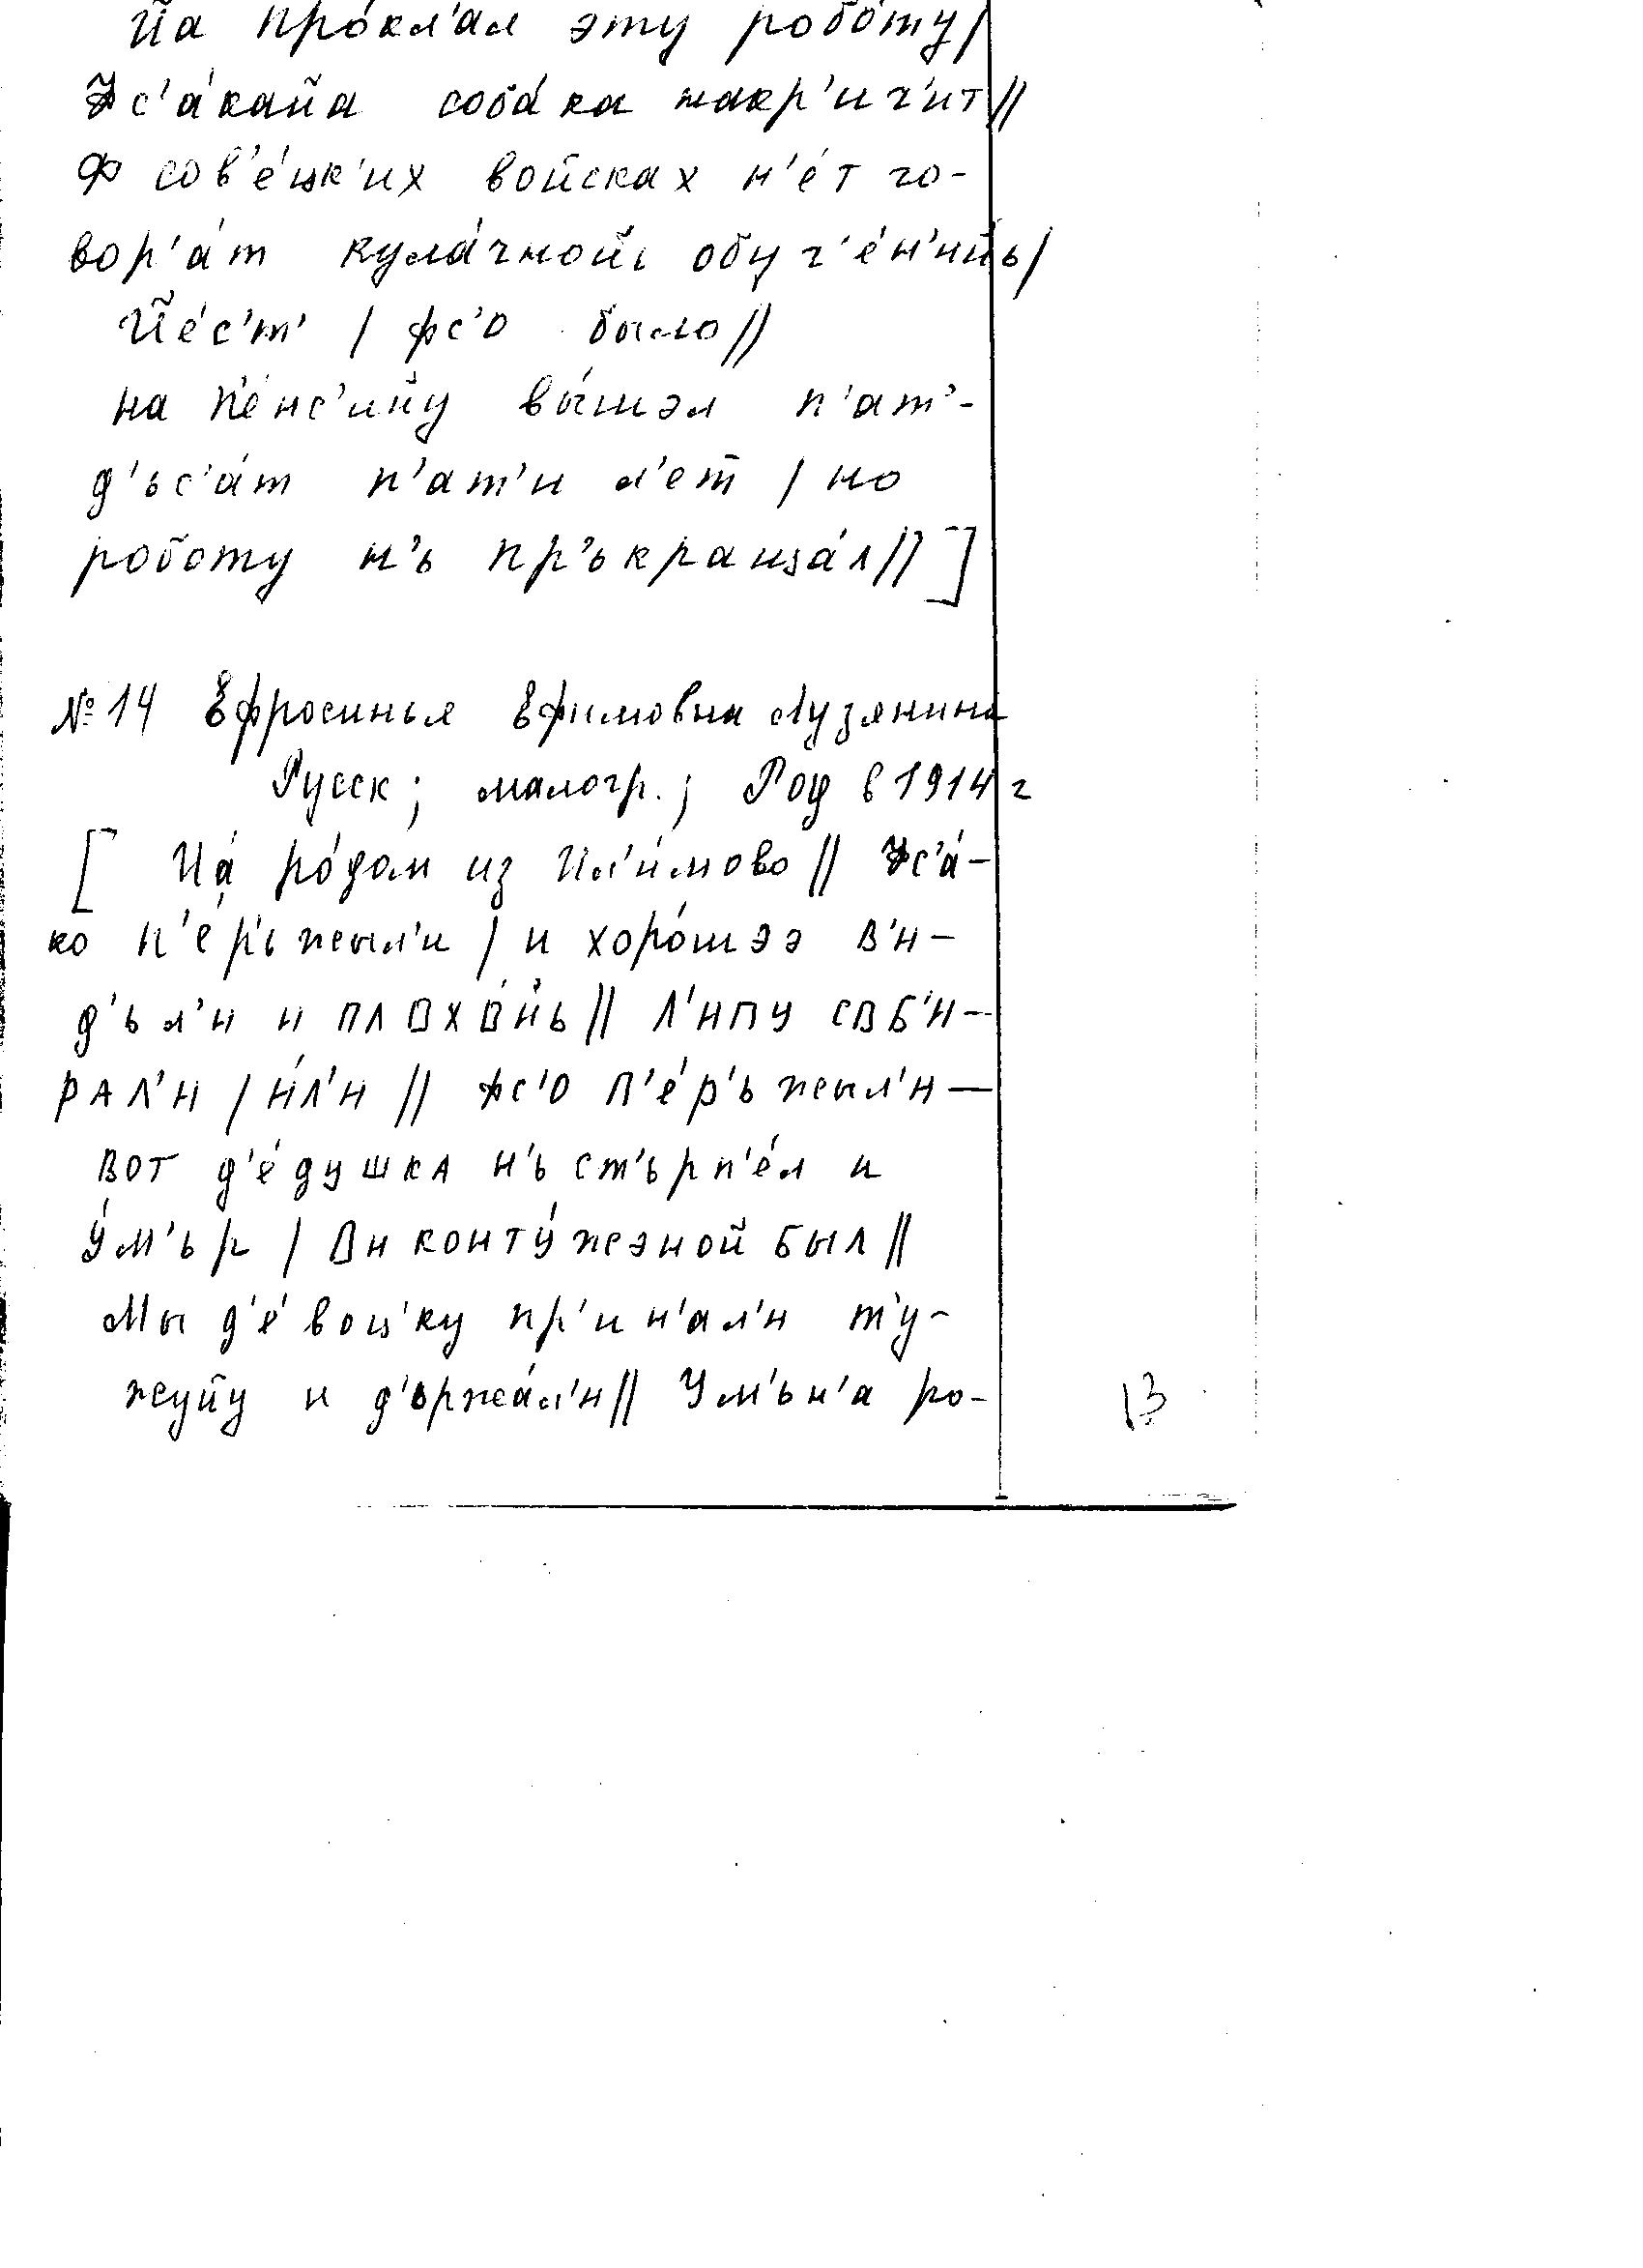 Йа про́кл'ал эту робо́ту/
Фс'а́кайа соба́ка накр'ич'ит//
Ф сов'е́цк'их войсках н'е́т го-
вор'а́т кула́чнойь обуч'е́н'ийь/
Йе́с'т' / фс'о было//
на п'е́нс'ийу вы́шэл п'ат'-
д'ьс'а́т п'ат'и л'ет / но
роботу н'ь пр'ькраща́л//]
№ 14 Ефросинья Ефимовна Лузянина
Русск; малогр.; Род в 1914 г
[ Йа́ ро́дом из Ил'и́мово // Фс'а́-
ко п'е́р'ьжыл'и / и хоро́шээ в'и-
д'ьл'и и плохо́йь // Л'ипу соб'и-
рал'и / и́л'и // фс'о п'е́р'ьжыл'и —
вот д'е́душка н'ь ст'ьрп'е́л и
у́м'ьр / Он конту́жэной был //
Мы д'е́воц'ку пр'ин'ал'и т'у-
жуйу и д'ьржа́л'и // Ум'ьн'а ро-
13